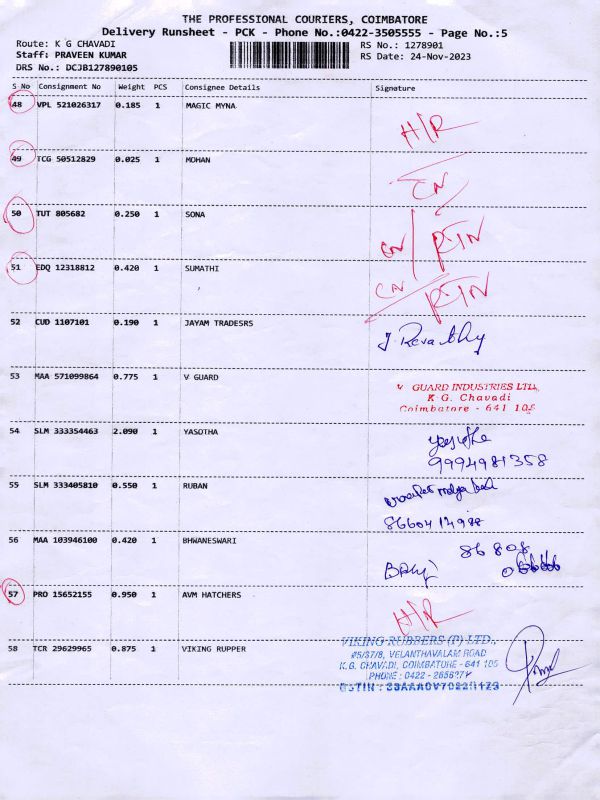 THE PROFESSIONAL COURIERS, COIMBATORE
Delivery Runsheet - PCK - Phone No.:0422-3505555 - Page No.:5
Route: K G CHAVADI
RS No.: 1278901
Staff: PRAVEEN KUMAR
RS Date: 24-Nov-2023
DRS No.: DCJB127890105
S No Consignment No Weight PCS Consignee Details Signature
48 VPL 521026317 0.185 1 MAGIC MYNA
H/R
49 TCG 50512829 0.025 1 MOHAN
CN
50 TUT 805682 0.250 1 SONA
CN
51 EDQ 12318812 0.420 1 SUMATHI
CN
52 CUD 1107101 0.190 1 JAYAM TRADESRS
53 MAA 571099864 0.775 1 V GUARD
V GUARD INDUSTRIES LTD.,
K G. Chavadi
Coimbatore - 641 105
54 SLM 333354463 2.090 1 YASOTHA
9994981358
55 SLM 333405810 0.550 1 RUBAN
56 MAA 103946100 0.420 1 BHWANESWARI
86 808
57 PRO 15652155 0.950 1 AVM HATCHERS
H/R
58 TCR 29629965 0.875 1 VIKING RUPPER
VIKING RUBBERS (P) LTD.,
VELANTHAVALAM ROAD
K.G. CHAVADI, COIMBATORE - 641 105
PHONE : 0422 -
GSTIN :